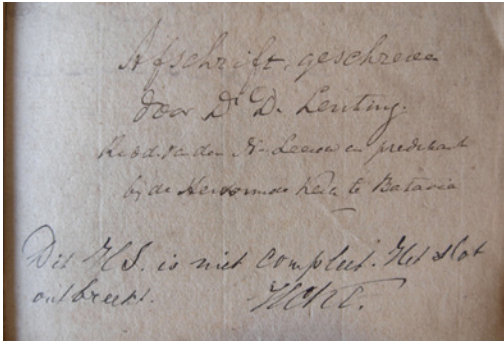 Afschrift, geschreven
door Dr D. Lenting.
Ridd. v. d. N. Leeuw en predikant
bij de Hervormde Kerk te Batavia
Dit H.S. is niet compleet. Het slot
ontbreekt.